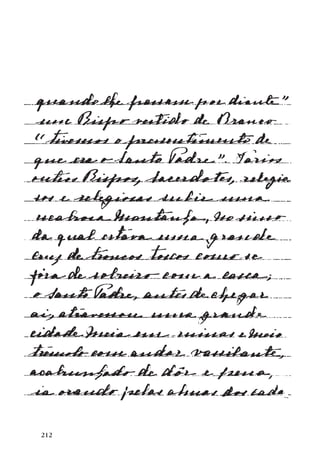 quando lhe passam por diante"
um Bispo vestido de Branco
"tivemos o pressentimento de
que era o Santo Padre". Varios
outros Bispos, Sacerdotes, religio
sos e religiosas subir uma
escabrosa montanha, no simo
da qual estava uma grande
Cruz de troncos toscos como se
fôra de sobreiro com a casca;
o Santo Padre, antes de chegar
aí, atravessou uma grande
cidade meia em ruinas e meio
trémulo com andar vassilante,
acabrunhado de dôr e pena,
ia orando pelas almas dos cada-
212